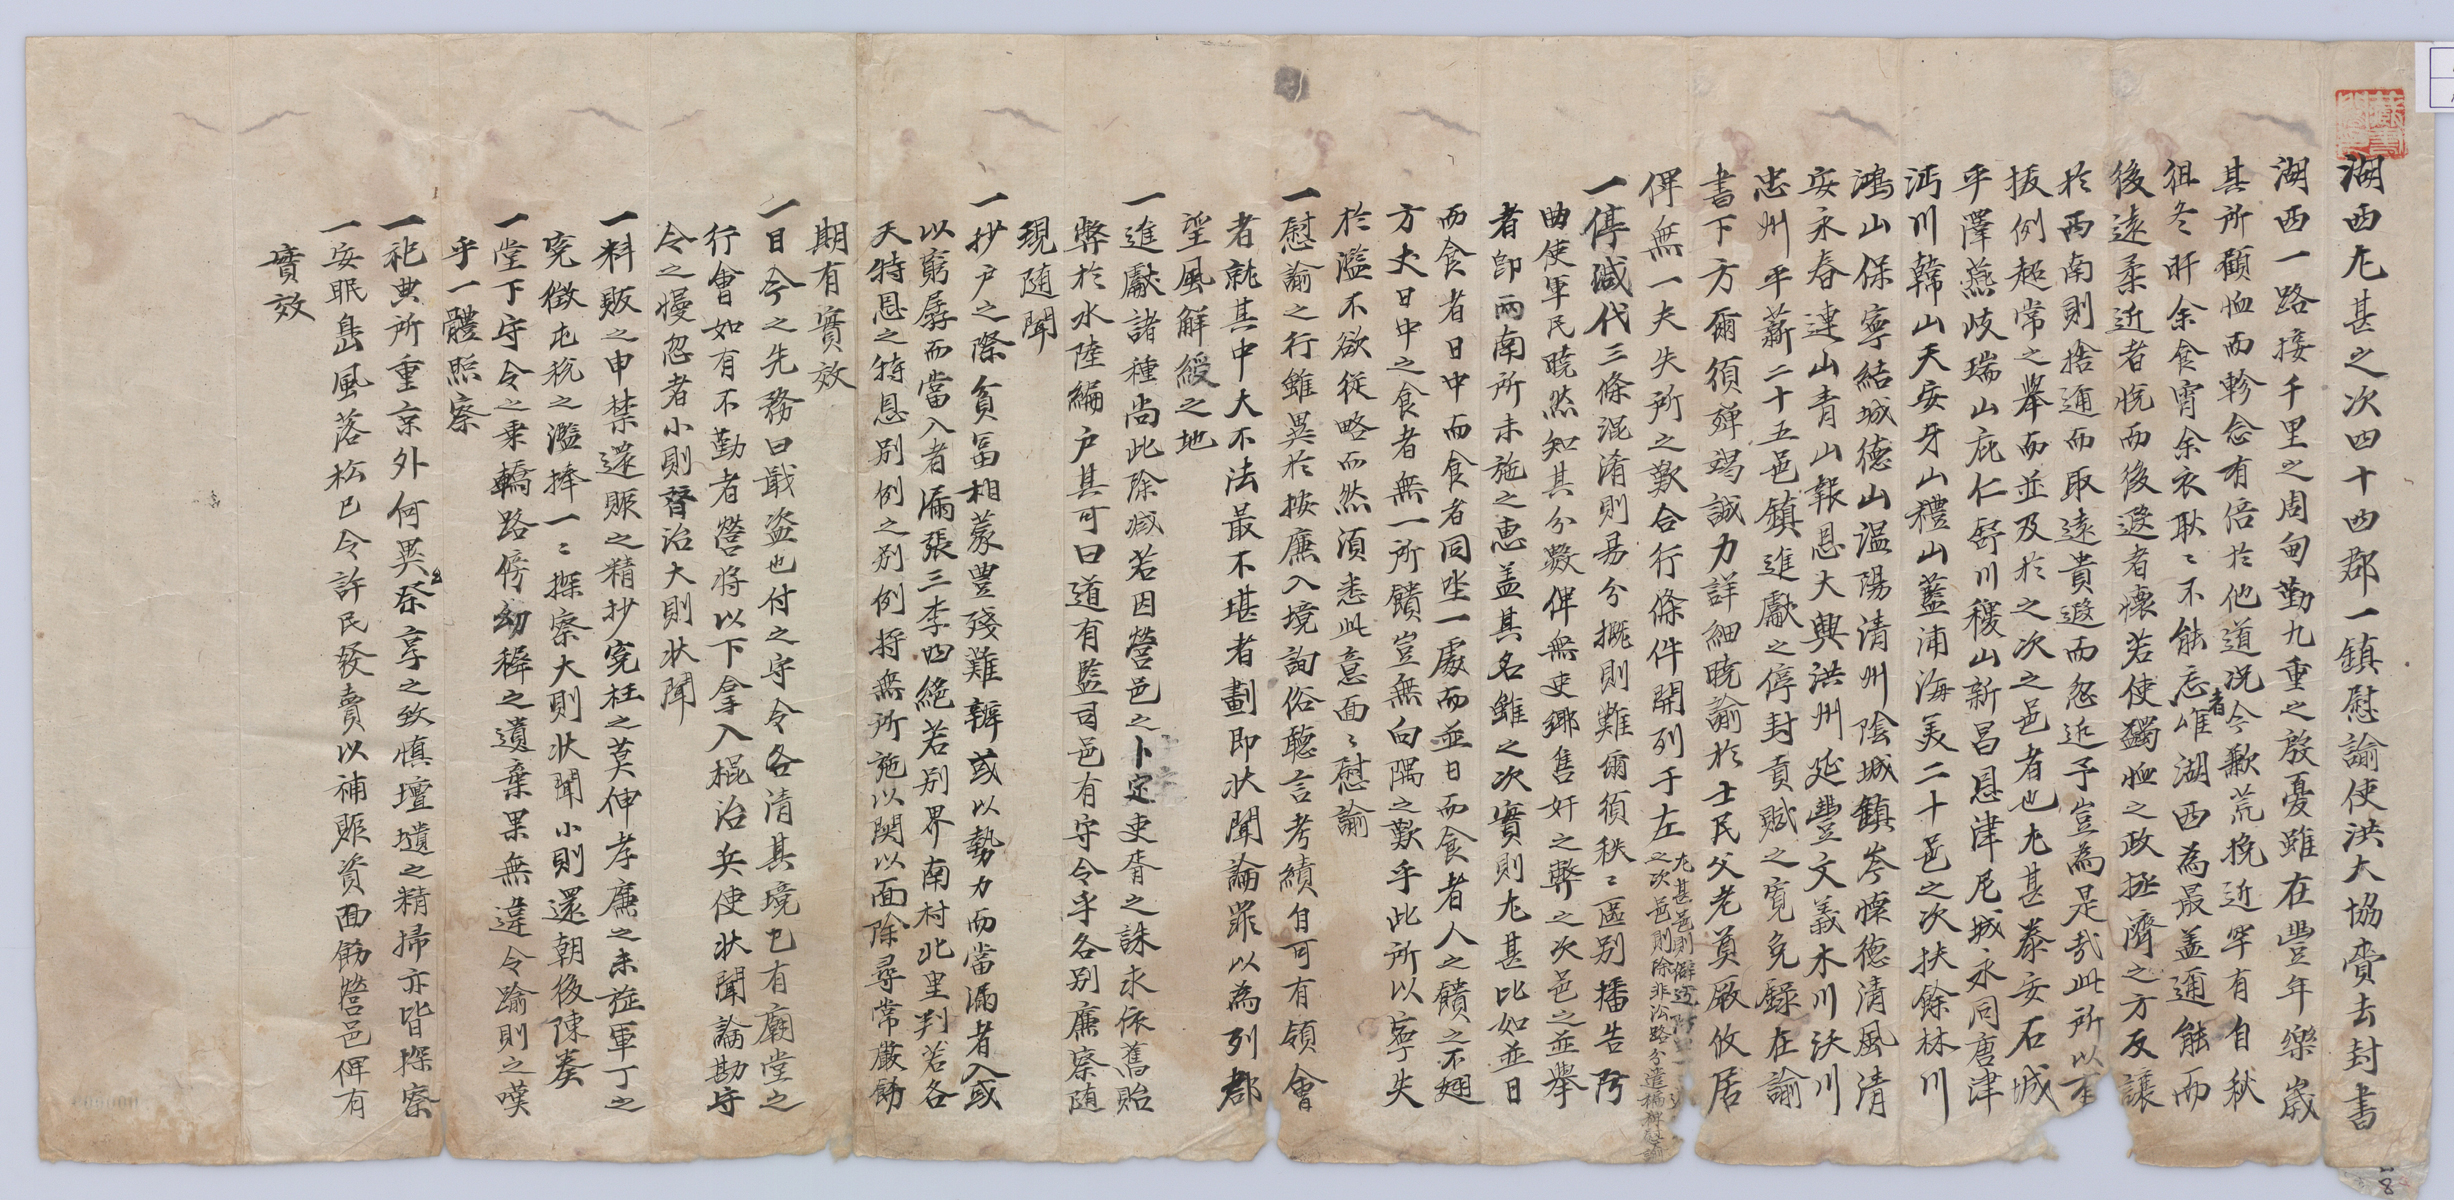 湖西尤甚之次四十四郡一鎮慰諭使洪大協賫去封書
湖西一路接千里之周甸勤九重之殷憂雖在豊年樂歲
其所顧恤而軫念有倍於他道況今歉荒挽近罕有自秋
徂冬旰余食宵余衣耿〻不能忘者唯湖西為最盖邇能而
後遠柔近者悅而後遐者懷若使蠲恤之政拯濟之方反讓
於兩南則捨邇而取遠貴遐而忽近予豈為是哉此所以
拔例超常之擧而並及於之次之邑者也尤甚泰安石城
平澤燕岐瑞山庇仁舒川稷山新昌恩津尼城永同唐津
沔川韓山天安牙山禮山藍浦海美二十邑之次扶餘林川
鴻山保寧結城德山溫陽清州陰城鎮岑懷德清風清
安永春連山青山報恩大興洪州延豐文義木川沃川
忠州平薪二十五邑鎮進獻之停封貢賦之寬免錄在諭
書下方爾須殫竭誠力詳細曉諭於士民父老奠厥攸居
俾無一夫失所之歎合行條件開列于左
尤甚邑則
之次邑則除非沿路分遣
一停減代三條混淆則易分概則難爾須秩〻區別播告
曲使軍民曉然知其分數俾無吏鄉售奸之弊之次邑之並舉
者即兩南所未施之惠盖其名雖之次實則尤甚比如並日
而食者日中而食者同坐一處而並日而食者人之饋之不翅
方丈日中之食者無一所饋豈無向隅之歎乎此所以寧失
於濫不欲從略而然須悉此意面〻慰諭
一慰諭之行雖異於按廉入境詢俗聽言考績自可有領會
者就其中大不法最不堪者劃即狀聞論罪以為列郡
望風解綬之地
一進獻諸種尚此除減若因營邑之卜定吏胥之誅求依舊貽
弊於水陸編戶其可曰道有監司邑有守令乎各別廉察隨
現隨聞
一抄戶之際貧富相蒙豐殘難辨或以勢力而當漏者入或
以窮孱而當入者漏張三李四絶若別界南村北里判若各
天特恩之特恩別例之別例將無所施以関以面除尋常嚴飭
期有實效
一目今之先務曰戢盜也付之守令各清其境已有廟堂之
行會如有不勤者營將以下拿入棍治兵使狀聞論勘守
令之慢忽者小則督治大則狀聞
一料販之申禁還賑之精抄冤枉之莫伸孝廉之未旌軍丁之
冤徵屯稅之濫捧一〻探察大則狀聞小則還朝後陳奏
一堂下守令之乘轎路傍幼稺之遺棄果無違令踰則之嘆
乎一體照察
一祀典所重京外何異祭享之致慎壇壝之精掃亦皆探察
一安眠島風落松已令許民發賣以補賑資面飭營邑俾有
實效